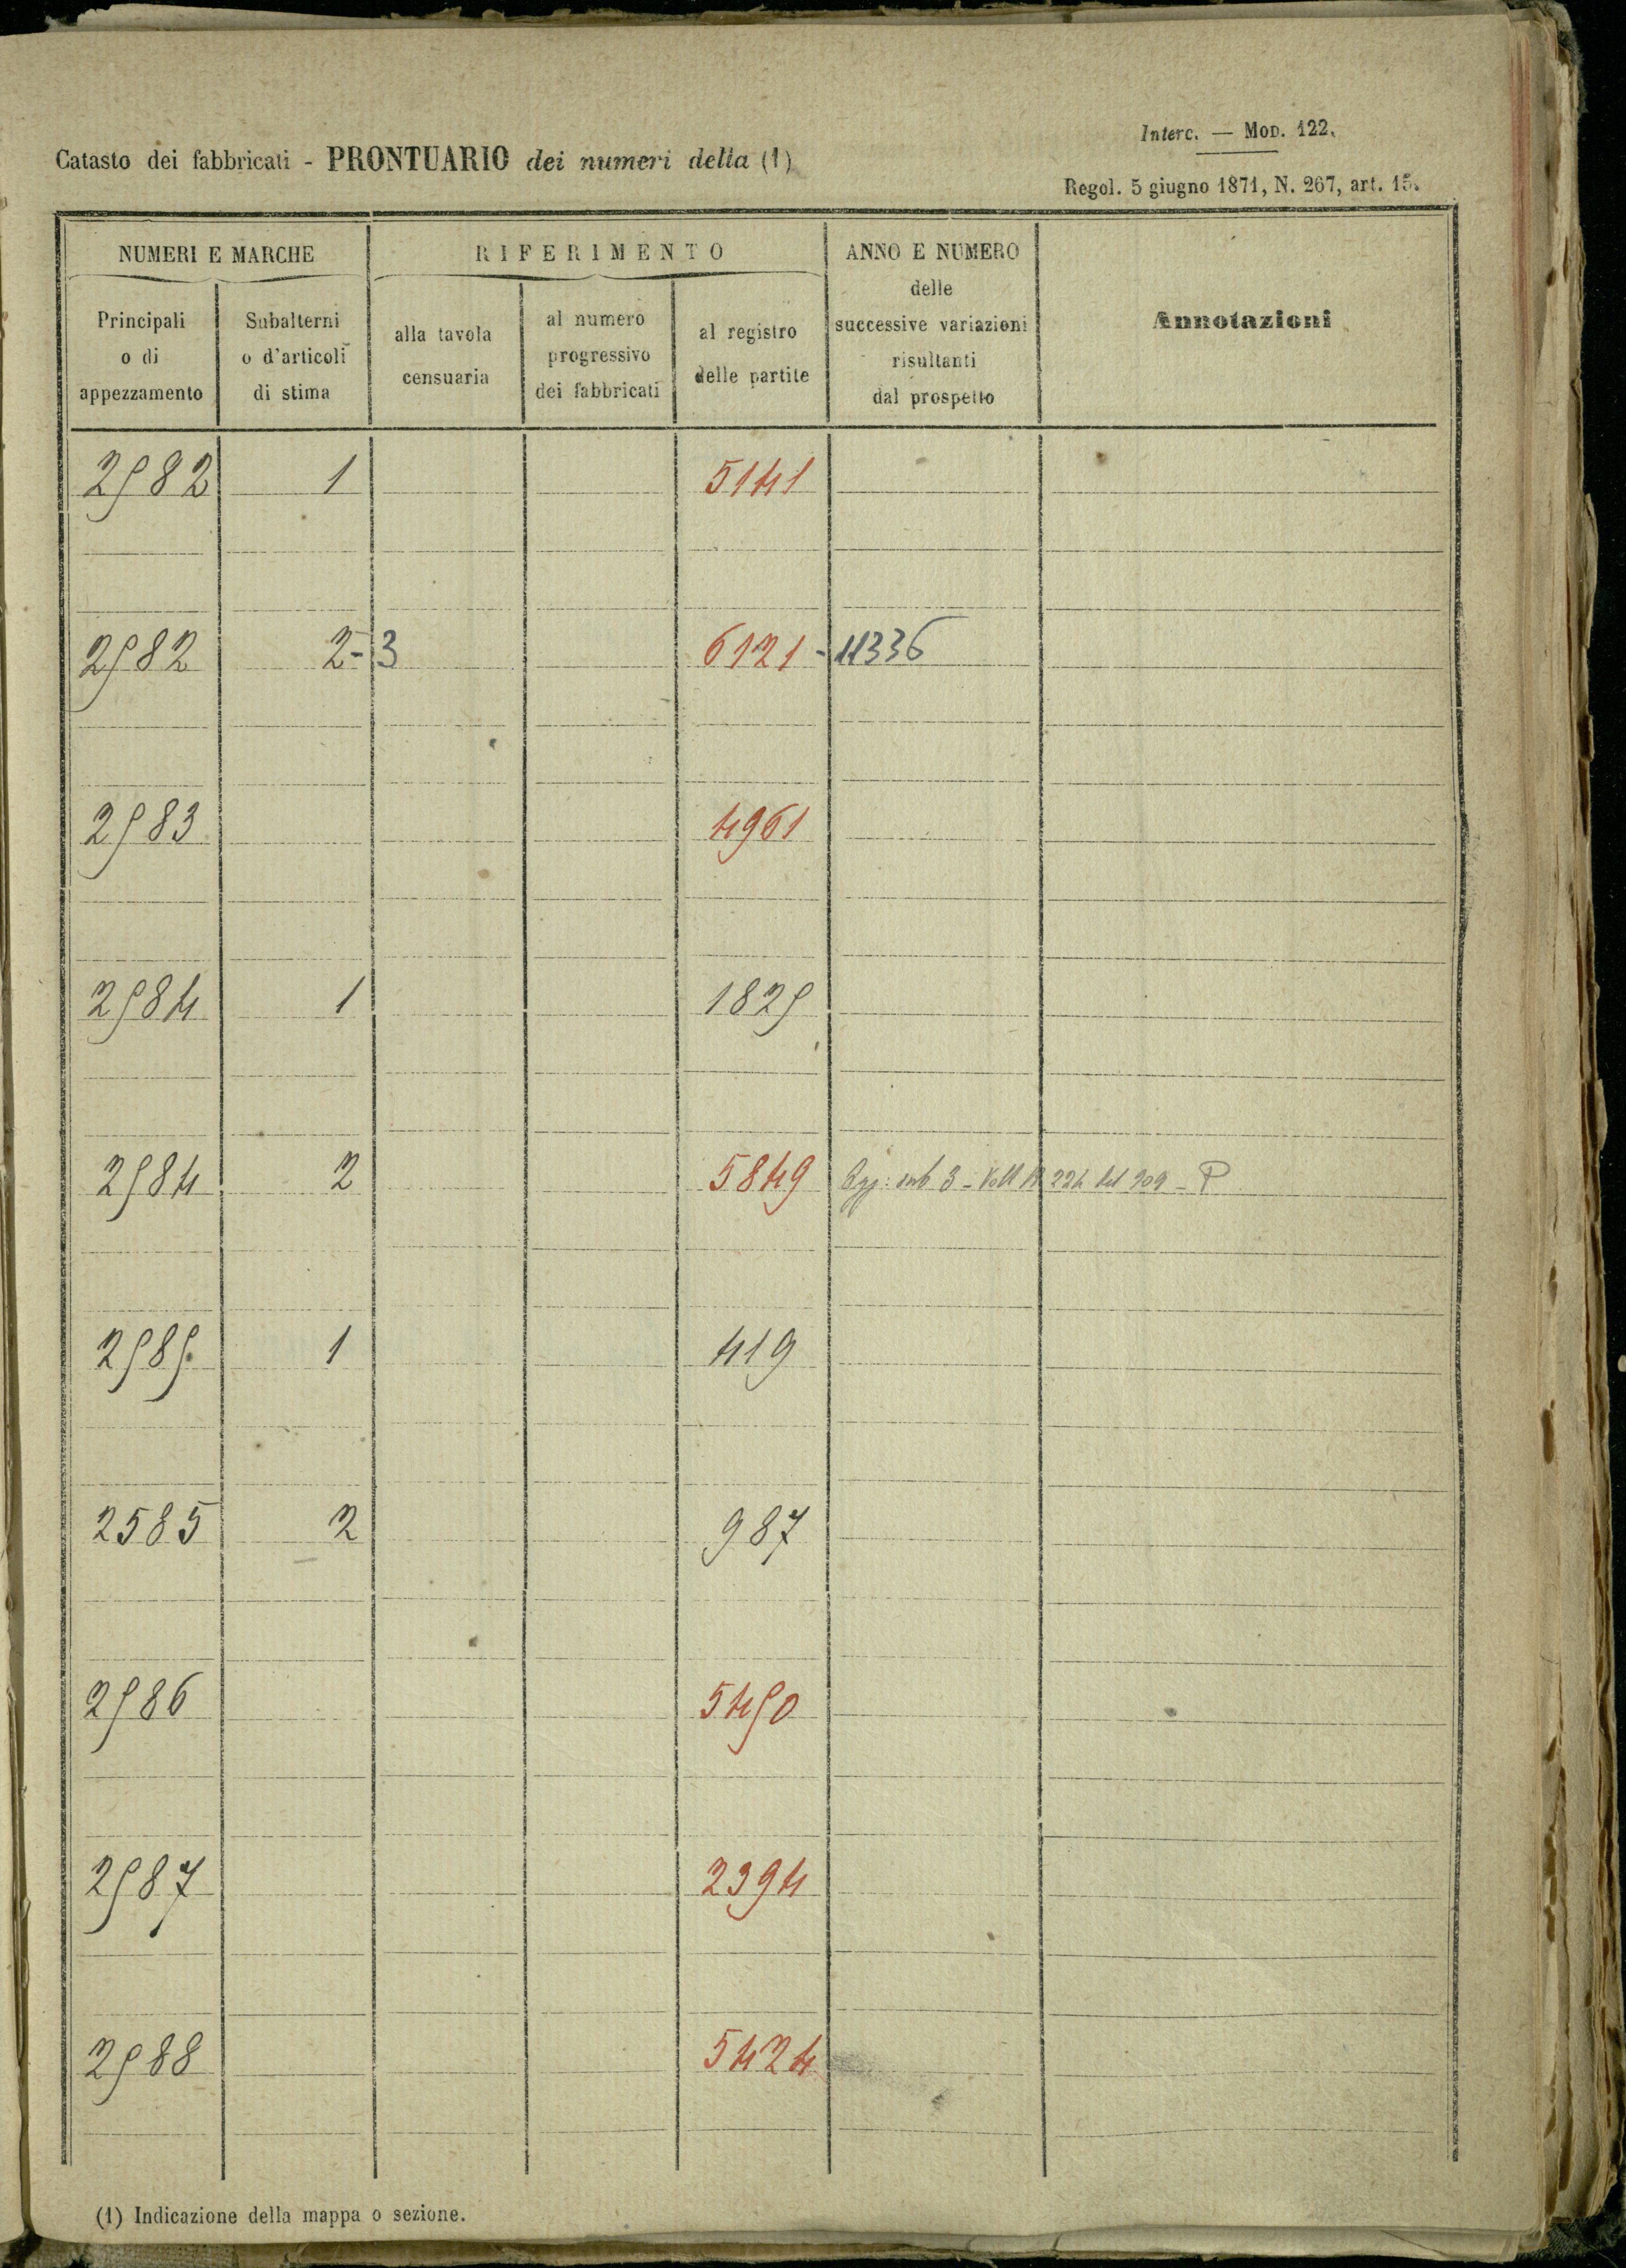 Interc. — Mod. 122.
Catasto dei fabbricati - PRONTUARIO dei numeri della (1)
Regol. 5 giugno 1871, N. 267, art. 15.
NUMERI E MARCHE
RIFERIMENTO
ANNO E NUMERO
delle
successive variazioni
risultanti
dal prospetto
Annotazioni
Principali
o di
appezzamento
Subalterni
o d'articoli
di stima
alla tavola
censuaria
al numero
progressivo
dei fabbricati
al registro
delle partite
2582 1 5141
2582 2-3 6121 - 11336
2583 4961
2584 1 1825
2584 2 5849 sub 3 -
2585 1 419
2585 2 987
2586 5450
2587 2394
2588 5424
(1) Indicazione della mappa o sezione.